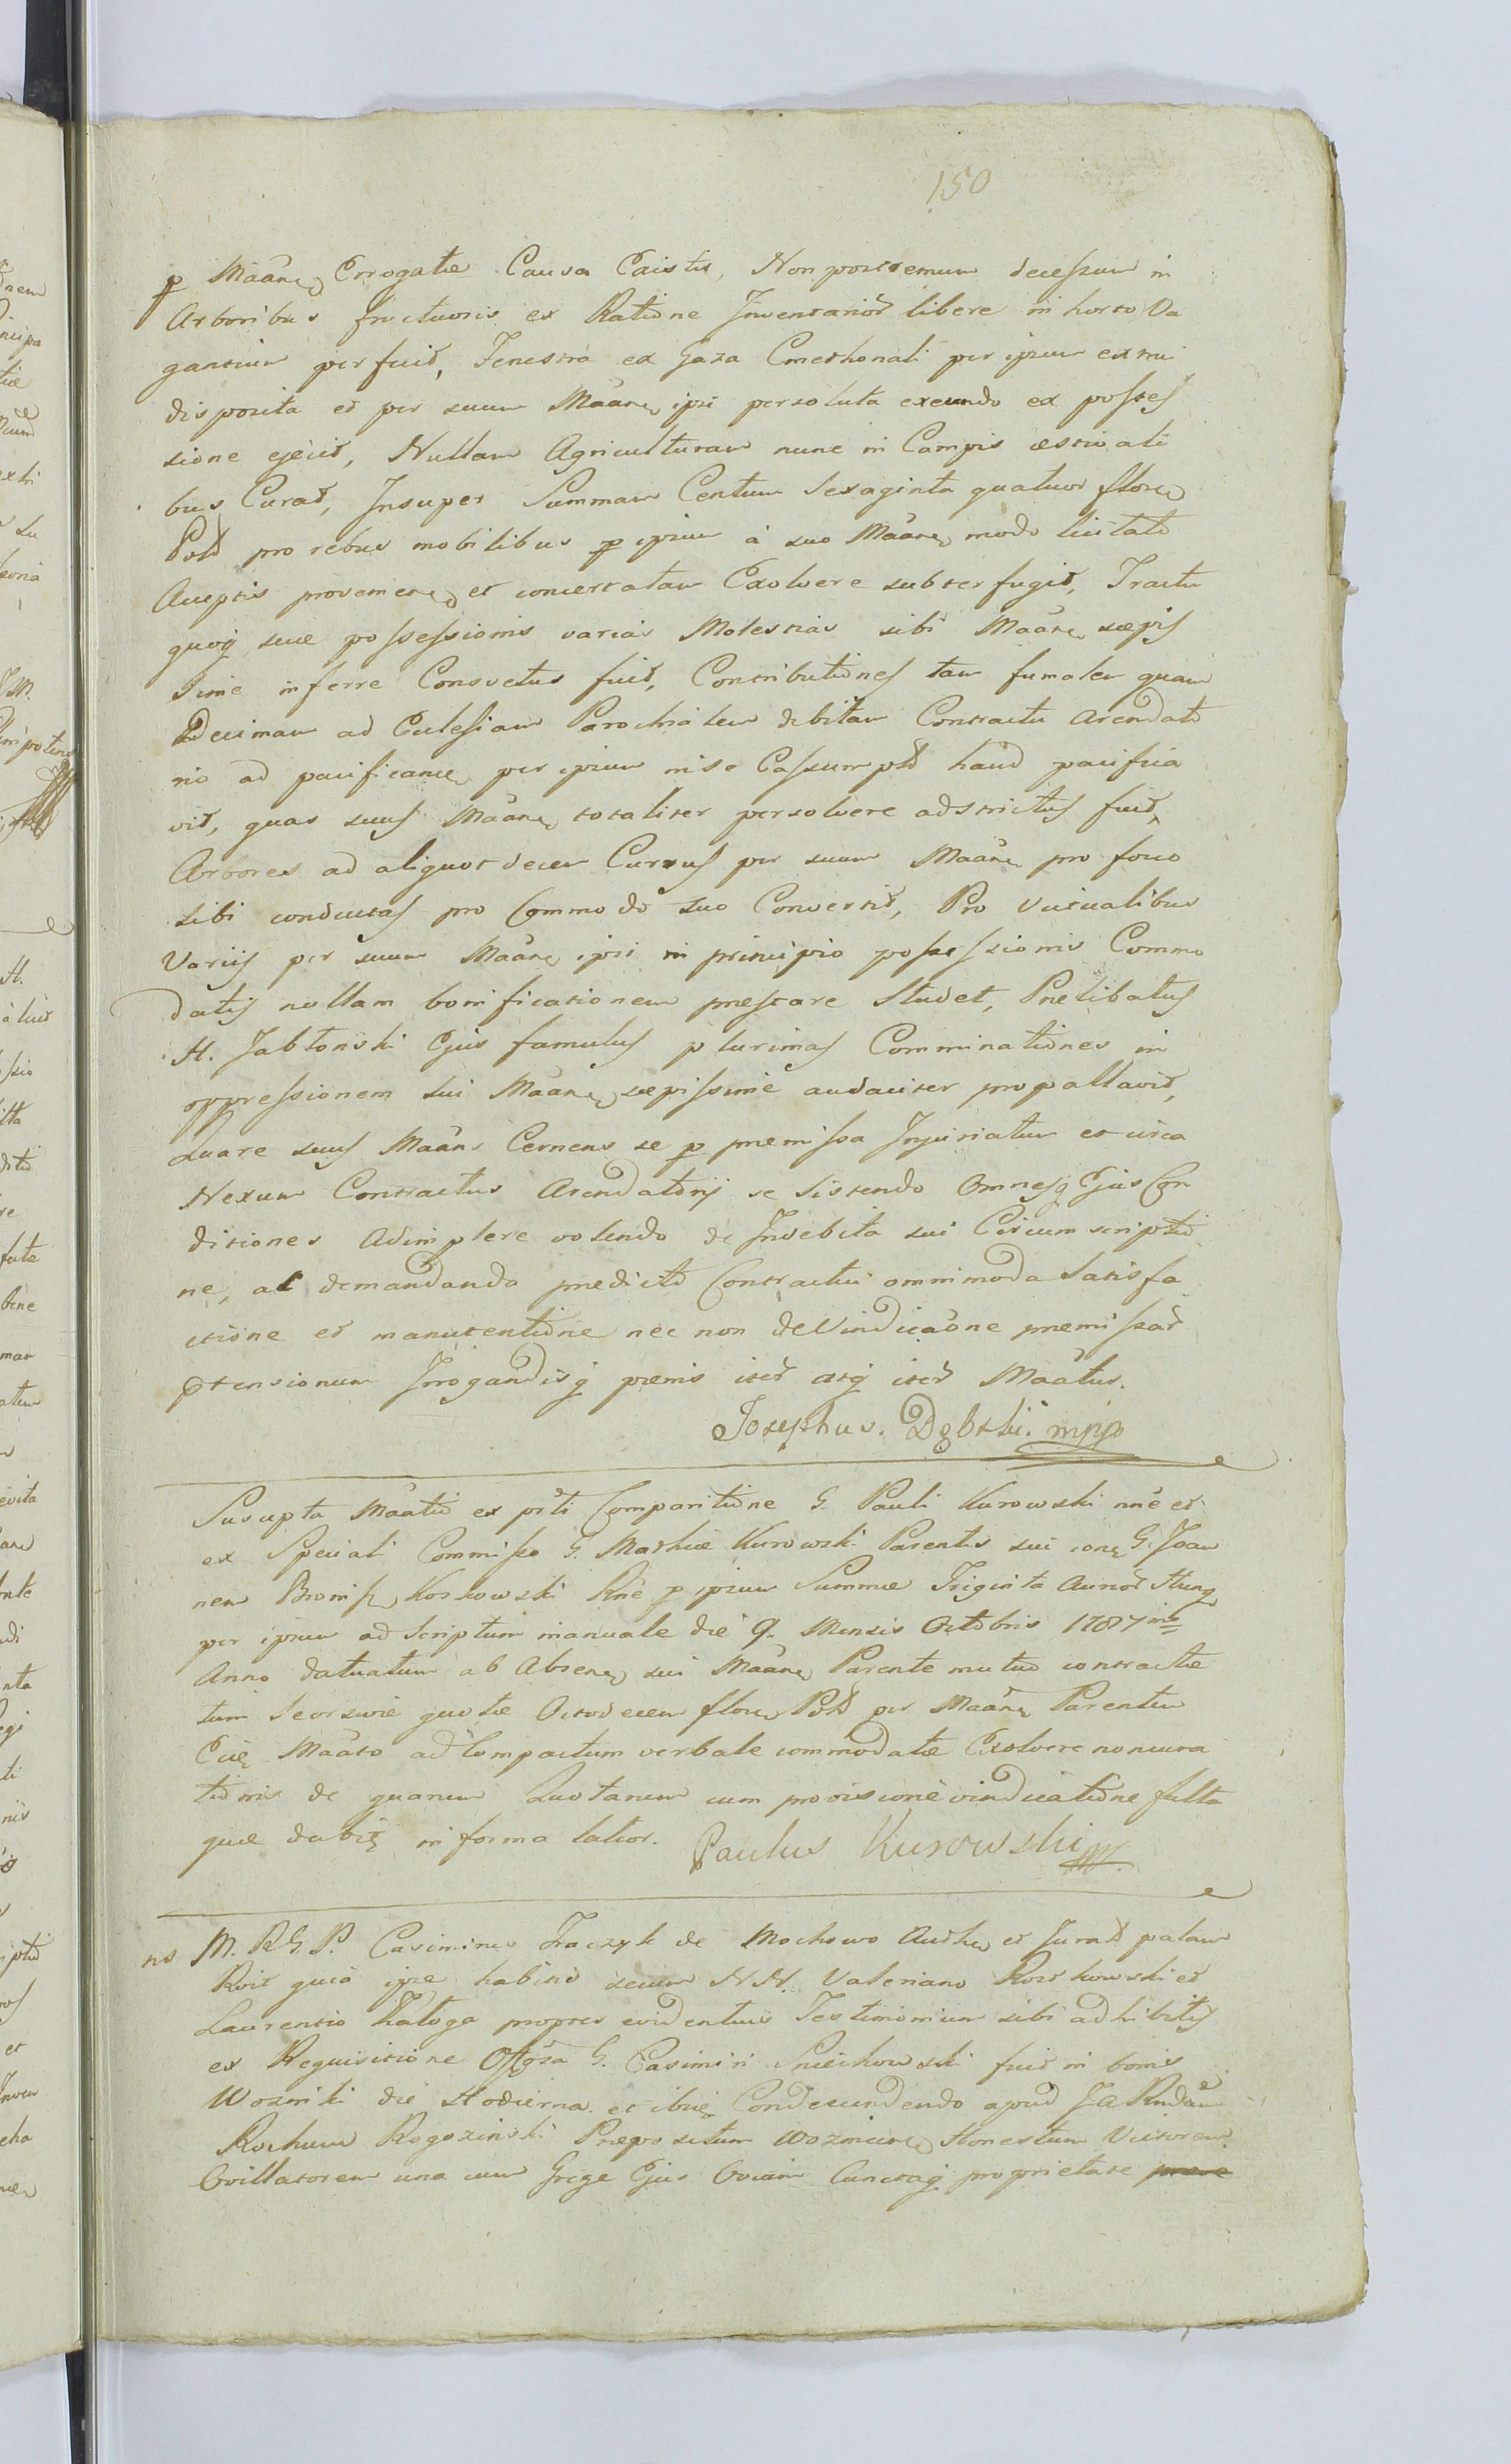 150
p Maãne Errogatæ Causa Caistis, Non postremum decessum in
Arboribus fructuosis ex Ratione Inventarior libere in horto Va
gantium perfuit, Fenestra ex Gaza Cmethonali per ipsum extrui
disposita et per suum Maãne ipsi persoluta exeundo ex posses
sione ejecit, Nullam Agriculturam nunc in Campis æstivali
bus Curat, Insuper Summam Centum Sexaginta quatuor flore
Pold pro rebus mobilibus p ipsum à suo Maãne modo licitato
Acceptis provenient et concertatam Exolvere subterfugit, Tractu
quoq suæ possessionis varias Molestias sibi Maãne sæpis
sime inferre Consvetus fuit, Contributiones tam fumalem quam
Decimam ad Ecclesiam Parochialem debitam Contractu Arendato
rio ad pacificand per ipsum in se Cassumpt haud pacifica
vit, quas suus Maãne totaliter persolvere adstrictus fuit,
Arbores ad aliquot decem Cursus per suum Maãne pro foco
sibi conductas pro Commodo suo Convertit, Pro Victualibus
Variis per suum Maãne ipsi in principio possessionis Commo
datis nullam bonificationem prestare Studet, Prelibatus
H. Jabłonski Ejus famulus plurimas Comminationes in
oppressionem sui Maãne sæpissime audaciter propallavit,
Quare suus Maãns Cernens se p premissa Injuriatum et circa
Nexum Contractus Arendatorij se Sistendo Omnesq Ejus Con
ditiones Adimplere volendo de Indebita sui Circumscriptio
ne, ac demandanda predicto Contractui omnimoda Satisfa
ctione et manutentione nec non deVindicaõne premissar
ptensionum Irrogandisq pœnis iter atq iter Maãtus.
Josephus. Dębski. mpp
Suscepta Maãtio ex psti Comparitione G. Pauli Kurowski nne et
ex Speciali Commisso G. Mathiæ Kurowski Parentis sui cona G. Joan
nem Bronisz Koskowski Rne p ipsum Summæ Triginta Auror Hung
per ipsum ad Scriptum manuale die 9. Mensis Octobris 1787mo
Anno datuatum ab Absene sui Maãne Parente mutuo contractæ
tum Seorsive quotæ Octodecem flore Pold per Maãne Parentem
Ejus Maãto ad Compactum verbale commodatæ Exolvere noncura
tionis de quarum Quotarum cum provisione vindicatione fulta
quæ dabit in forma latior. Paulus Kurowski mp
ns M. R G. P. Casimirus Traczyk de Mochowo Authen et Jurat palam
Roit quia ipse habitis secum NN. Valeriano Rosrkowski et
Laurentio Kałoga propter evidentius Testimonium sibi adhibitis
ex Requisitione Offgsa G. Casimiri Sniechowski fuit in bonis
Wozniki die Hodierna et ibiq Condecendendo apud Ja Rndãm
Rochum Rogozinski Præpositum Wozniciens Honestum Victorem
Ovillatorem una cum Grege Ejus Ovium Cunctaq proprietate